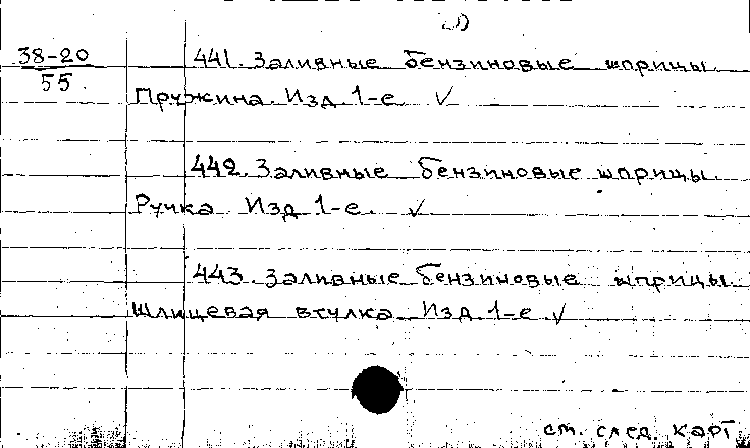 38-20
55.
441. Заливные бензиновые шприцы.
Пружина. Изд. 1-е. ✓
442. Заливные бензиновые шприцы.
Ручка Изд 1-е. ✓
443. Заливные бензиновые шприцы.
Шлицевая втулка Изд. 1-е. ✓
см. след. карт